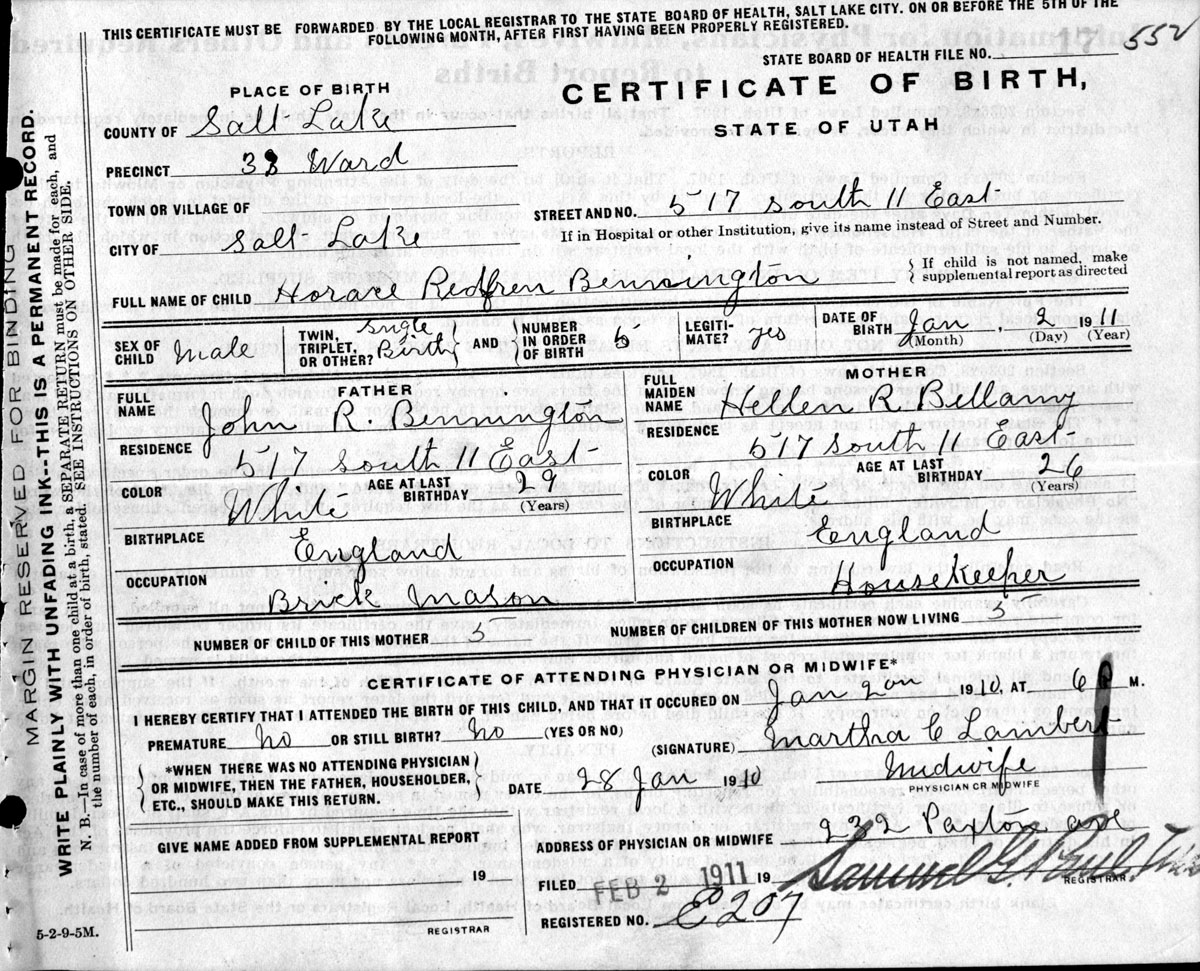 THIS CERTIFICATE MUST BE FORWARDED BY THE LOCAL REGISTRAR TO THE STATE BOARD OF HEALTH, SALT LAKE CITY. ON OR BEFORE THE 5TH OF THE
FOLLOWING MONTH, AFTER FIRST HAVING BEEN PROPERLY REGISTERED.
STATE BOARD OF HEALTH FILE NO. 17 552
MARGIN RESERVED FOR BINDING
WRITE PLAINLY WITH UNFADING INK--THIS IS A PERMANENT RECORD.
N. B.--In case of more than one child at a birth, a SEPARATE RETURN must be made for each, and
the number of each, in order of birth, stated. SEE INSTRUCTIONS ON OTHER SIDE.
PLACE OF BIRTH
CERTIFICATE OF BIRTH,
STATE OF UTAH
COUNTY OF Salt Lake
PRECINCT 33 Ward
TOWN OR VILLAGE OF
STREET AND NO. 517 South 11 East
CITY OF Salt Lake
If in Hospital or other Institution, give its name instead of Street and Number.
FULL NAME OF CHILD Horace Redfren Bennington
If child is not named, make supplemental report as directed
SEX OF CHILD Male TWIN, TRIPLET, OR OTHER? Single Birth AND NUMBER IN ORDER OF BIRTH 5 LEGITIMATE? Yes DATE OF BIRTH Jan 2 1911
(Month) (Day) (Year)
FATHER
FULL NAME John R. Bennington
RESIDENCE 517 South 11 East
COLOR White AGE AT LAST BIRTHDAY 29 (Years)
BIRTHPLACE England
OCCUPATION Brick Mason
MOTHER
FULL MAIDEN NAME Hellen R. Bellamy
RESIDENCE 517 South 11 East
COLOR White AGE AT LAST BIRTHDAY 26 (Years)
BIRTHPLACE England
OCCUPATION Housekeeper
NUMBER OF CHILD OF THIS MOTHER 5 NUMBER OF CHILDREN OF THIS MOTHER NOW LIVING 5
CERTIFICATE OF ATTENDING PHYSICIAN OR MIDWIFE*
I HEREBY CERTIFY THAT I ATTENDED THE BIRTH OF THIS CHILD, AND THAT IT OCCURED ON Jan 2 1910, AT 6 M.
PREMATURE No OR STILL BIRTH? No (YES OR NO) (SIGNATURE) Martha C Lambert
*WHEN THERE WAS NO ATTENDING PHYSICIAN
OR MIDWIFE, THEN THE FATHER, HOUSEHOLDER,
ETC., SHOULD MAKE THIS RETURN.
DATE 28 Jan 1910 Midwife
PHYSICIAN OR MIDWIFE
GIVE NAME ADDED FROM SUPPLEMENTAL REPORT
19
REGISTRAR
ADDRESS OF PHYSICIAN OR MIDWIFE 232 Paxton ave
FILED FEB 2 1911 19 Samuel G. Paul
REGISTRAR
REGISTERED NO. 207
5-2-9-5M.